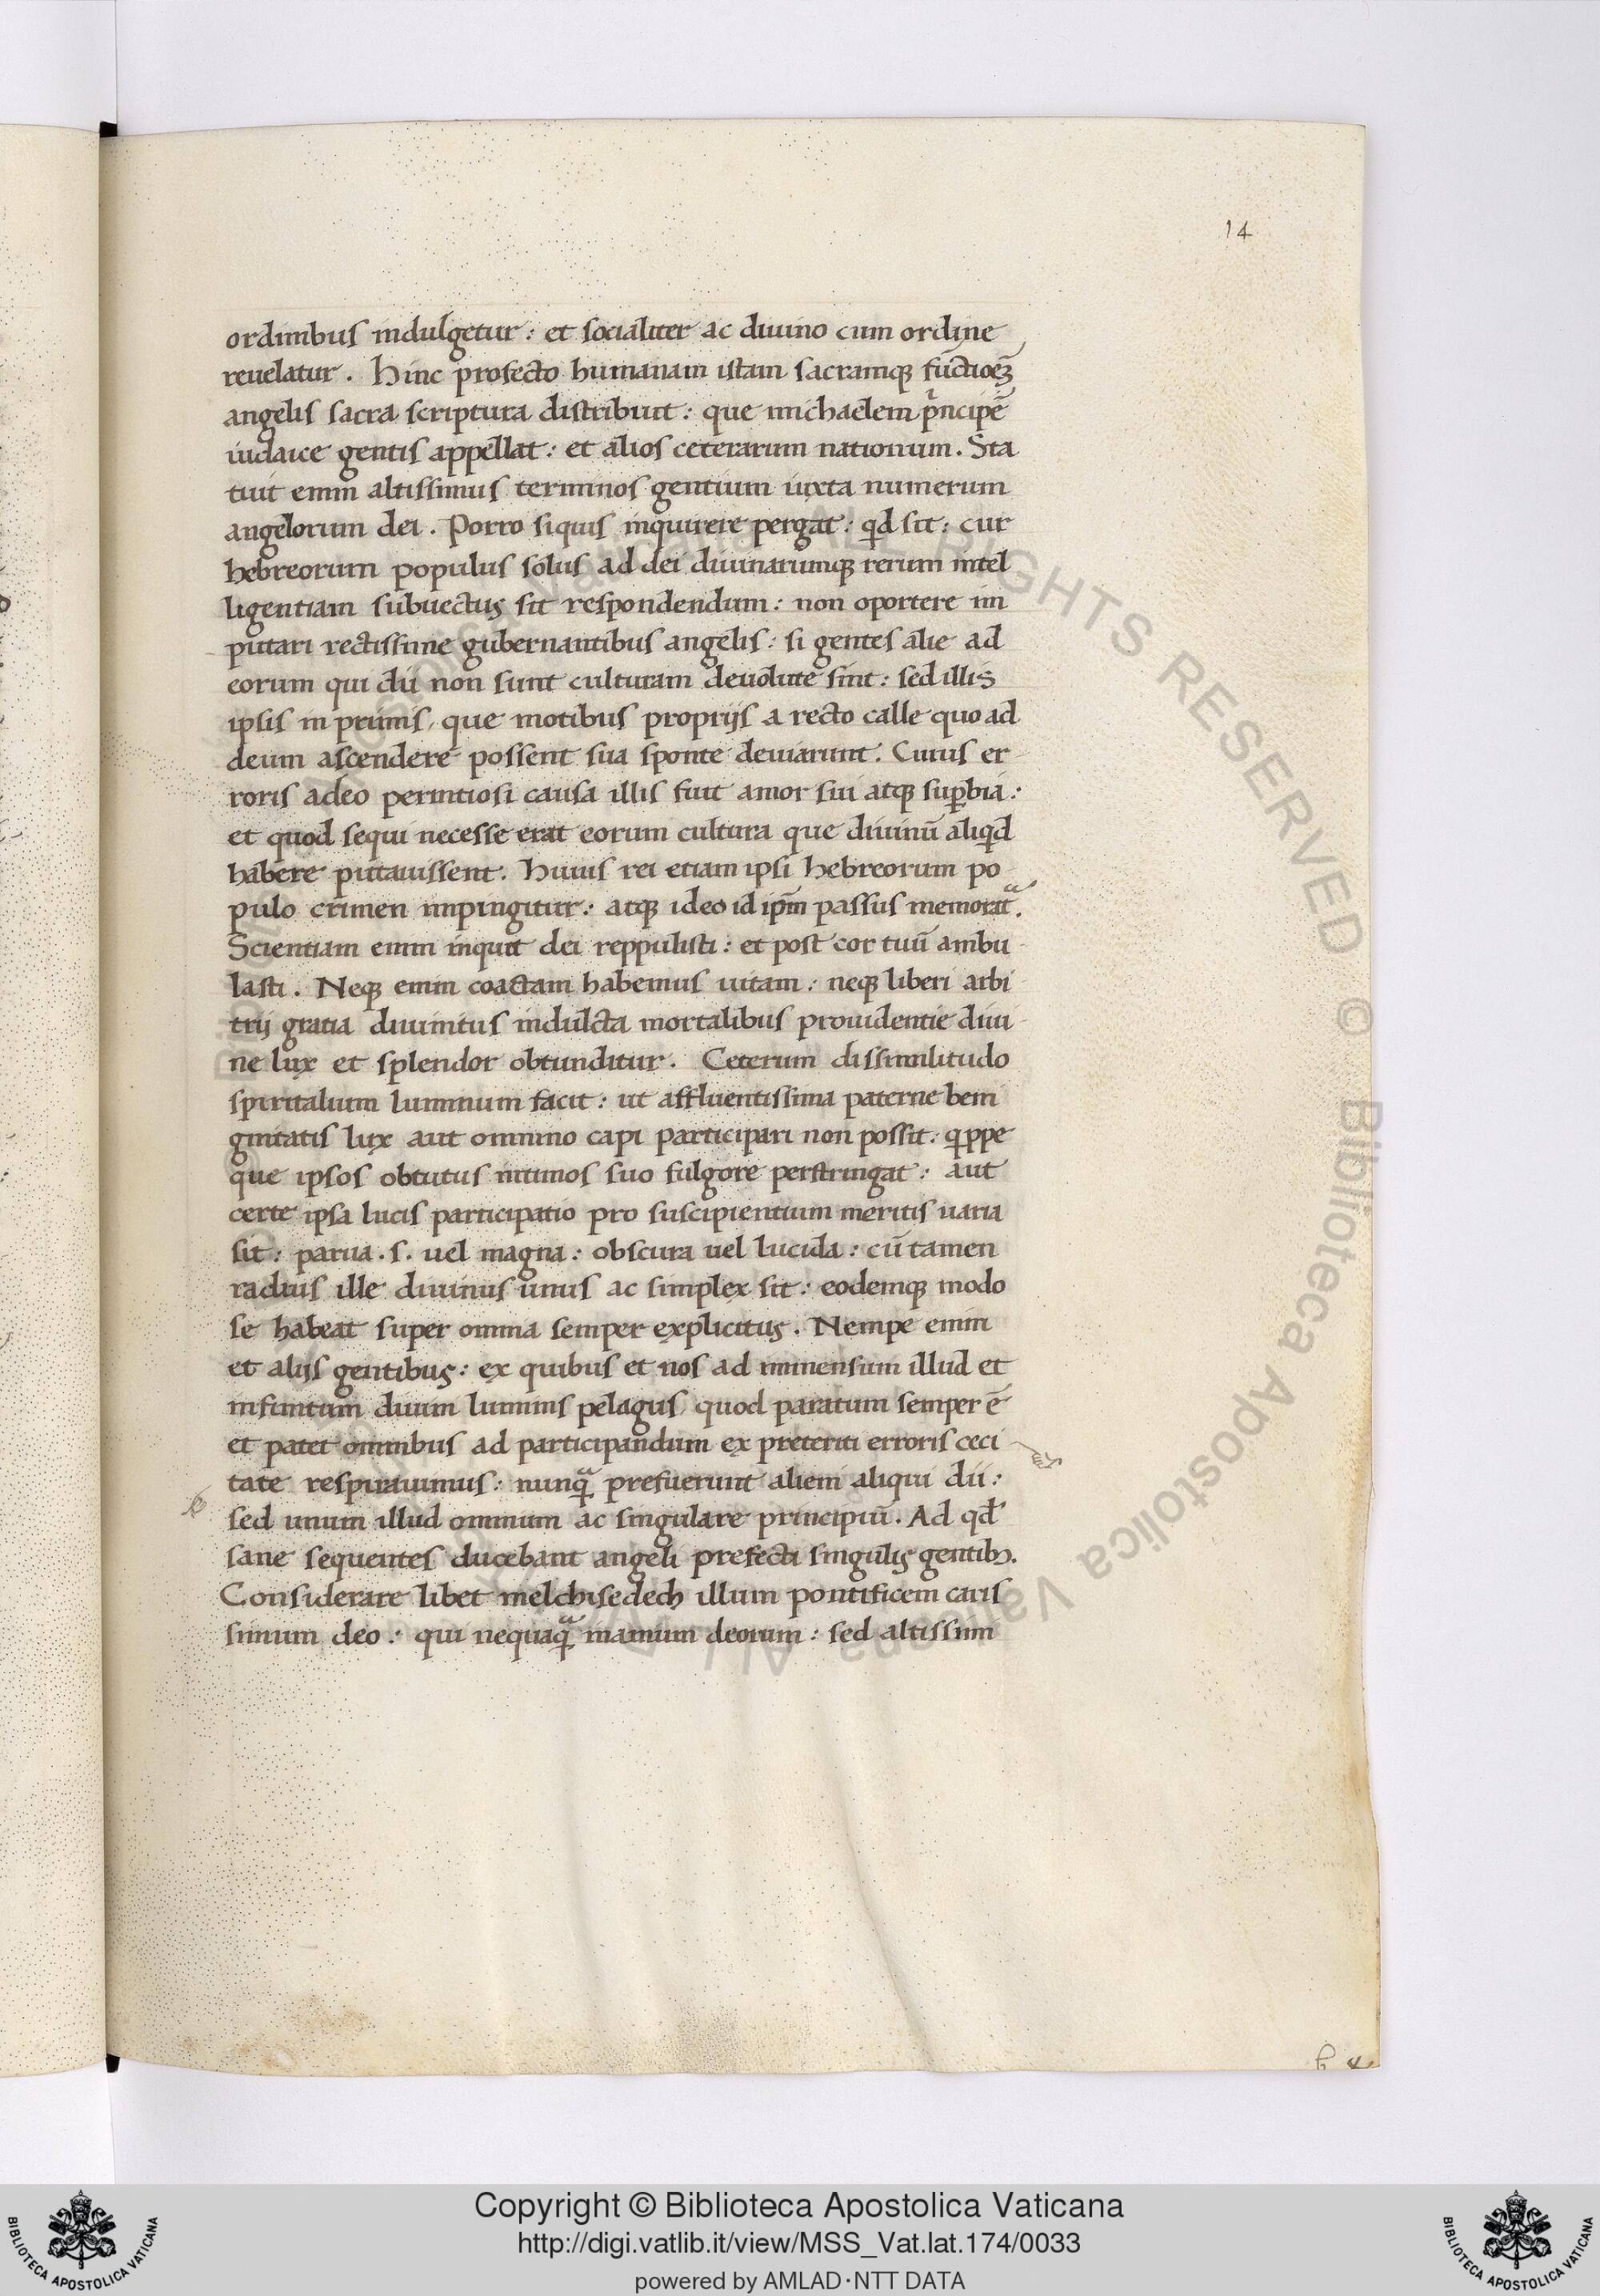 14
ordinibus indulgetur: et socialiter ac diuino cum ordine
reuelatur. Hinc profecto humanam istam sacramqꝫ fūctioēꝫ
angelis sacra scriptura distribuit: que michaelem pͥncipē
iudaice gentis appellat: et alios ceterarum nationum. Sta
tuit enim altissimus terminos gentium iuxta numerum
angelorum dei. Porro siquis inquirere pergat: qͥd sit: cur
hebreorum populus solus ad dei diuinarumqꝫ rerum intel
ligentiam subuectus sit respondendum: non oportere im
putari rectissime gubernantibus angelis: si gentes alie ad
eorum qui dii non sunt culturam deuolute sint: sed illis
ipsis in primis, que motibus proprijs a recto calle quo ad
deum ascendere possent sua sponte deuiarunt. Cuius er
roris adeo pernitiosi causa illis fuit amor sui atqꝫ suꝑbia:
et quod sequi necesse erat eorum cultura que diuinū aliqͥd
habere putauissent. Huius rei etiam ipsi hebreorum po
pulo crimen impingitur: atqꝫ ideo id ip̄m passus memoratᵃ.
Scientiam enim inquit dei reppulisti: et post cor tuū ambu
lasti. Neqꝫ enim coactam habemus uitam: neqꝫ liberi arbi
trij gratia diuinitus indulcta mortalibus prouidentie diui
ne lux et splendor obtunditur. Ceterum dissimilitudo
spiritalium luminum facit: ut affluentissima paterne beni
gnitatis lux aut omnino capi participari non possit: qͥppe
que ipsos obtutus intimos suo fulgore perstringat: aut
certe ipsa lucis participatio pro suscipientium meritis uaria
sit: parua .s. uel magna: obscura uel lucida: cū tamen
radius ille diuinus unus ac simplex sit: eodemqꝫ modo
se habeat super omnia semper explicitus. Nempe enim
et alijs gentibus: ex quibus et nos ad immensum illud et
infinitum diuini luminis pelagus, quod paratum semper ē
et patet omnibus ad participandum ex preteriti erroris ceci
tate respirauimus: nunqᵃ̄ prefuerunt alieni aliqui dii:
sed unum illud omnium ac singulare principiū. Ad qd'
sane sequentes ducebant angeli prefecti singulis gentibꝫ.
Considerare libet melchisedech illum pontificem caris
simum deo: qui nequaqᵃ̄ inanium deorum: sed altissimi
b 4
© Biblioteca Apostolica Vaticana ALL RIGHTS RESERVED
Copyright © Biblioteca Apostolica Vaticana
http://digi.vatlib.it/view/MSS_Vat.lat.174/0033
powered by AMLAD·NTT DATA
BIBLIOTECA APOSTOLICA VATICANA
BIBLIOTECA APOSTOLICA VATICANA